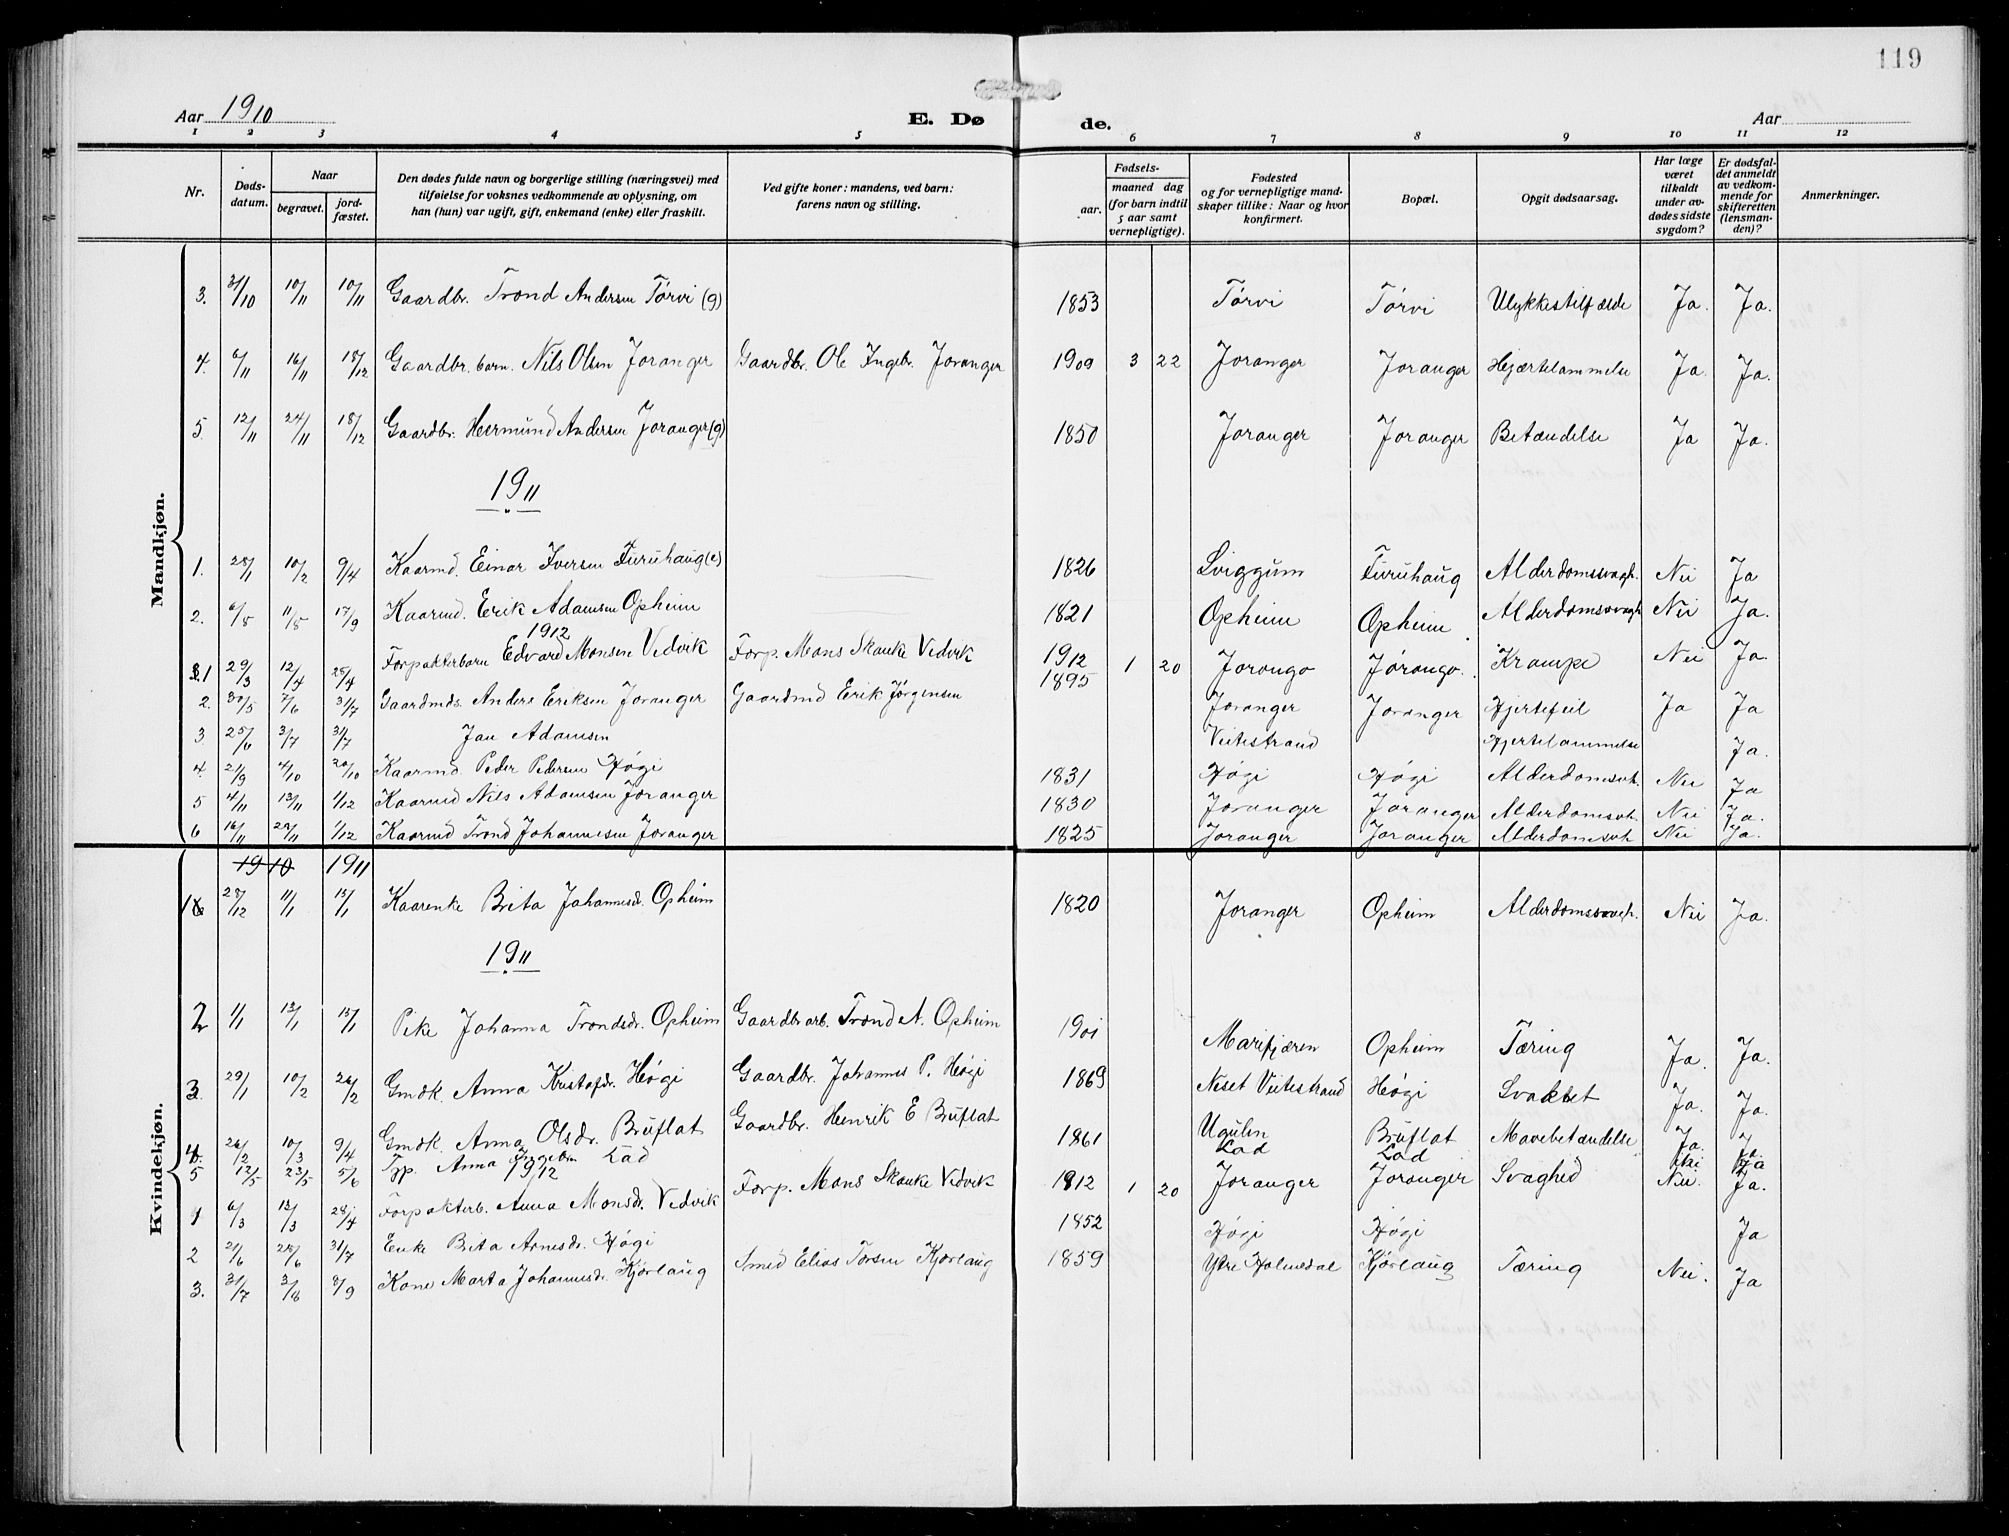 119
Aar 1910 E. Døde. Aar
1 2 3 4 5 6 7 8 9 10 11 12
Nr. Dødsdatum. Naar begravet. jordfæstet. Den dødes fulde navn og borgerlige stilling (næringsvei) med tilføielse for voksnes vedkommende av oplysning, om han (hun) var ugift, gift, enkemand (enke) eller fraskilt. Ved gifte koner: mandens, ved barn: farens navn og stilling. Fødsels- aar. maaned dag (for barn indtil 5 aar samt vernepligtige). Fødested og for vernepligtige mandskaper tillike: Naar og hvor konfirmert. Bopæl. Opgit dødsaarsag. Har læge været tilkaldt under avdødes sidste sygdom? Er dødsfaldet anmeldt av vedkommende for skifteretten (lensmanden)? Anmerkninger.
Mandkjøn.
3. 31/10 10/11 10/11 Gaardbr. Trond Andersen Tørvi (g) 1853 Tørvi Tørvi Ulykkestilfælde Ja. Ja.
4. 6/11 16/11 18/12 Gaardbr. barn. Nils Olsen Joranger Gaardbr. Ole Ingebr. Joranger 1909 3 22 Joranger Joranger Hjærtelammelse Ja. Ja.
5 12/11 24/11 18/12 Gaardbr. Hermund Andersen Joranger (g) 1850 Joranger Joranger Betændelse Ja Ja.
1911
1. 28/1 10/2 9/4 Kaarmd. Einar Iversen Furuhaug (e) 1826 Lviggum Furuhaug Alderdomssvagh. Nei Ja
2. 6/8 11/8 17/9 Kaarmd. Erik Adamsen Opheim 1821 Opheim Opheim Alderdomssvagh Nei Ja.
1912
1 29/3 12/4 25/4 Forpakterbarn Edvard Monsen Vedvik Forp. Mons Skauke Vedvik 1912 1 20 Jorango Jorango. Krampe Nei Ja.
2. 30/5 7/6 31/7 Gaardmds. Anders Eriksen Joranger Gaardmd Erik Jørgensen 1895 Joranger Joranger Hjertefeil Ja Ja
3 25/6 3/7 31/7 Jan Adamsen Veitestrand Hjertelammelse Ja.
4. 21/9 4/10 20/10 Kaarmd. Peder Pedersen Høgi 1831 Høgi Høgi Alderdomsvh. Nei Ja
5 4/11 13/11 1/12 Kaarmd Nils Adamsen Joranger 1830 Joranger Joranger Alderdomsvh. Nei Ja.
6 16/11 25/11 1/12 Kaarmd Trond Johannesen Joranger 1825 Joranger Joranger Alderdomsvh Nei Ja.
Kvindekjøn.
1910 1911
1 28/12 11/1 15/1 Kaarenke Brita Johannesdr. Opheim 1820 Joranger Opheim Alderdomssvagh. Nei Ja.
1911
2 1/1 13/1 15/1 Pike Johanna Trondsdr. Opheim Gaardbrarb. Trond A. Opheim 1901 Marifjæren Opheim Tæring Ja. Ja.
3 29/1 10/2 26/2 Gmdk. Anna Kristofdr. Høgi Gaardbr. Johannes P. Høgi 1869 Neset Veitestrand Høgi Svakhet Ja. Ja.
4. 26/2 10/3 9/4 Gmdk. Anna Olsdr. Bruflat Gaardbr. Henrik E Bruflat 1861 Ugulen Bruflat Mavebetændelse Ja Ja
5 12/5 23/5 5/6 Anna Ingebr. Lad Lad Lad Nei Ja
1912
1 6/3 13/3 28/4 Forpakterb. Anna Monsdr. Vedvik Forp. Mons Skauke Vedvik 1912 1 20 Joranger Joranger Svaghed Nei. Ja.
2 21/6 28/6 31/7 Enke Brita Arnesdr. Høgi 1852 Høgi Høgi Ja
3. 31/7 3/8 8/9 Kone Marta Johannesdr Kjørlaug Smed Elias Torsen Kjørlaug 1859 Ytre Holmedal Kjørlaug Tæring Nei. Ja